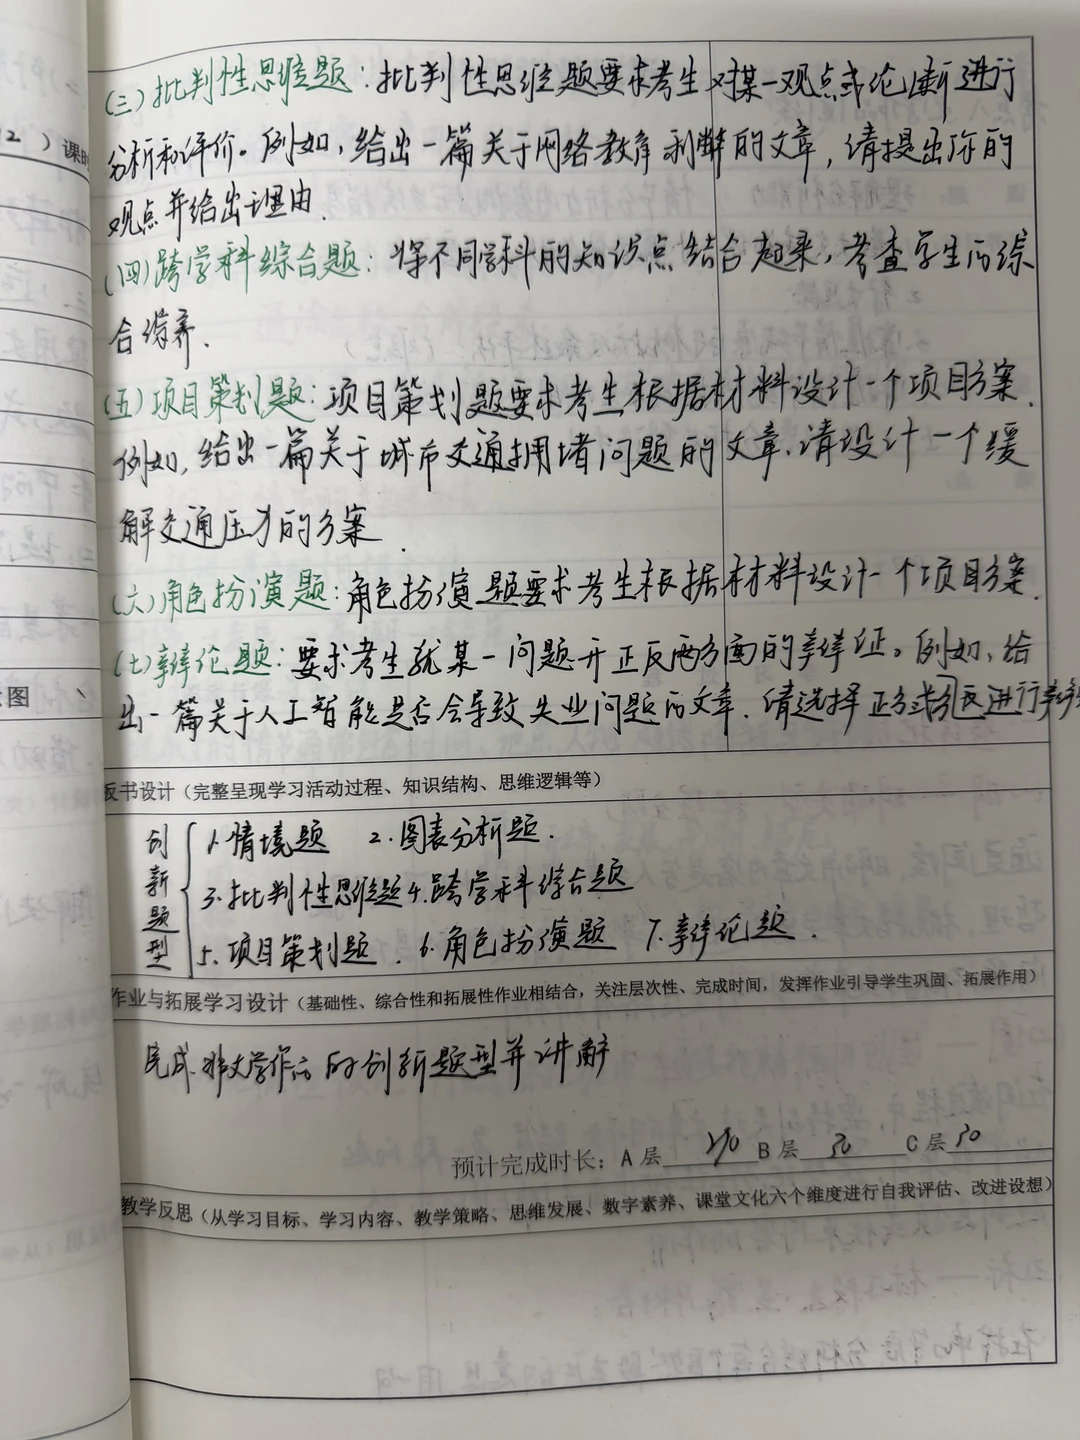 (三)批判性思维题：批判性思维题要求考生对某一观点或论断进行
分析和评价。例如，给出一篇关于网络教育利弊的文章，请提出你的
观点并给出理由.
(四)跨学科综合题：将不同学科的知识点结合起来，考查学生的综
合培养.
(五)项目策划题：项目策划题要求考生根据材料设计一个项目方案.
例如，给出一篇关于城市交通拥堵问题的文章，请设计一个缓
解交通压力的方案.
(六)角色扮演题：角色扮演题要求考生根据材料设计一个项目方案.
(七)辩论题：要求考生就某一问题开正反两方面的辩证。例如，给
出一篇关于人工智能是否会导致失业问题的文章，请选择正方或反进行
板书设计（完整呈现学习活动过程、知识结构、思维逻辑等）
创新题型
1.情境题 2.图表分析题.
3.批判性思维题 4.跨学科综合题
5.项目策划题. 6.角色扮演题 7.辩论题.
作业与拓展学习设计（基础性、综合性和拓展性作业相结合，关注层次性、完成时间，发挥作业引导学生巩固、拓展作用）
完成 文学作品的创新题型并讲解
预计完成时长：A层 B层 30 C层 30
教学反思（从学习目标、学习内容、教学策略、思维发展、数字素养、课堂文化六个维度进行自我评估、改进设想）
2 ）课时
图